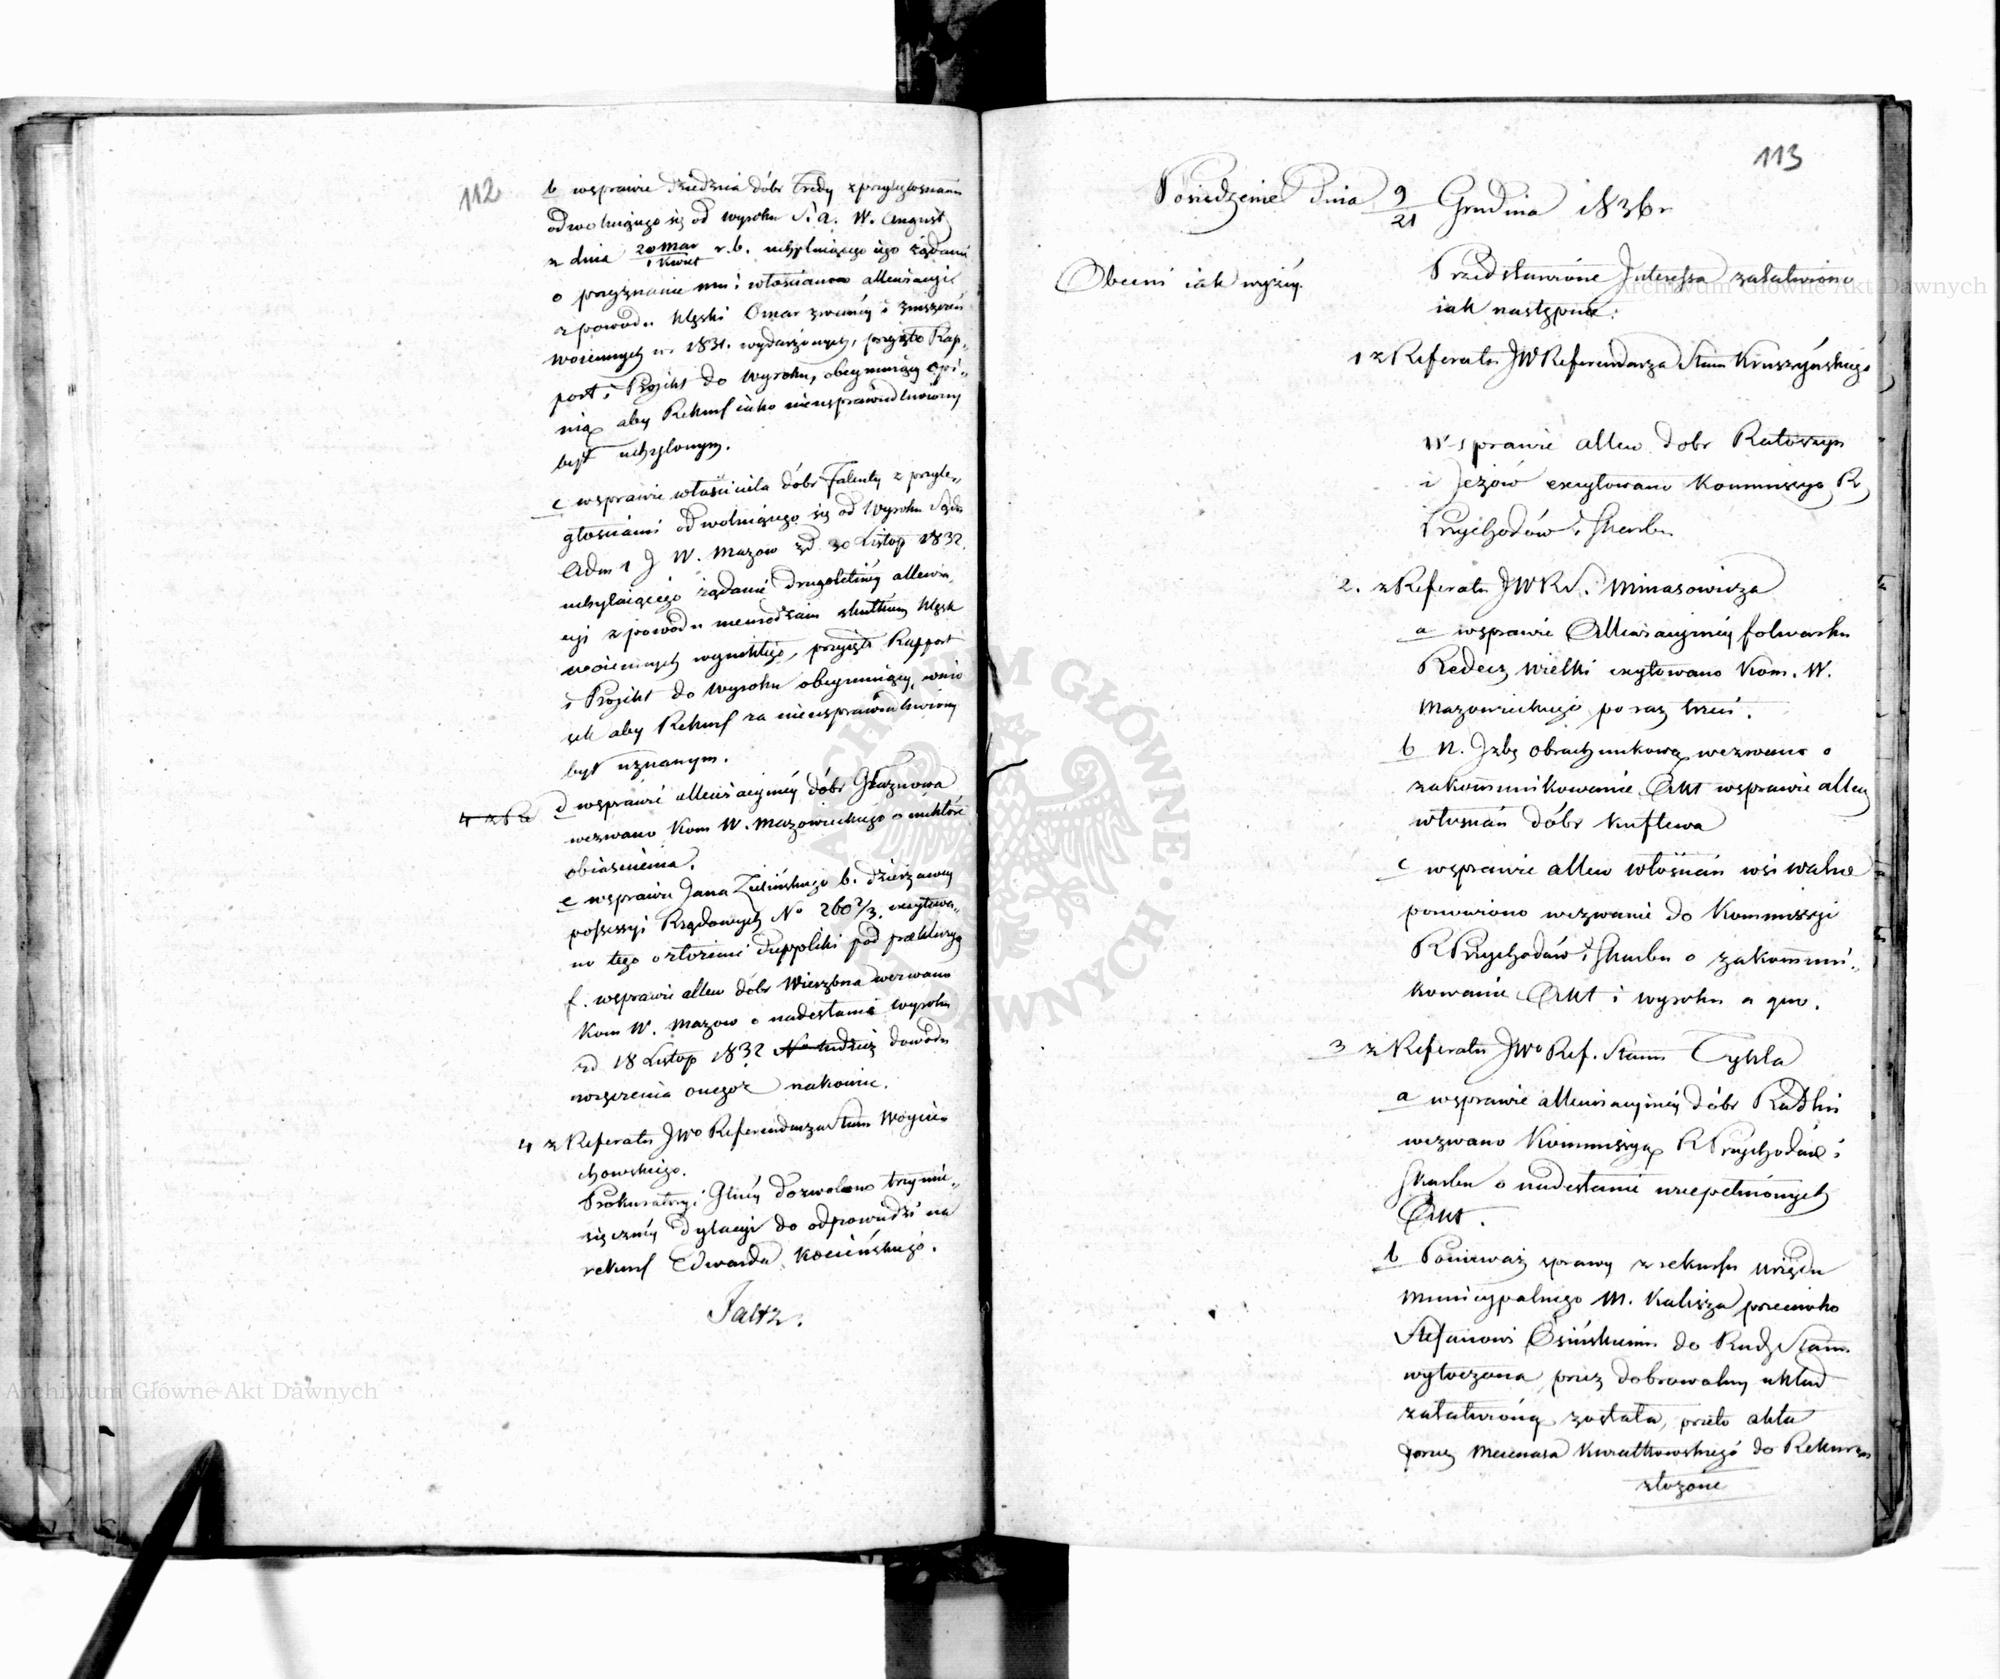 112
b wsprawie Dziedzica dóbr Tredy z przyległościami
odwołuiącego się od wyroku S. A. W. August
z dnia 20 Mar / 1 Kwiet r. b. uchylaiącego iego żądanie
o przyznanie mu i włościanom allewiacyi
z powodu klęski Omar zwanéy i zniszczeń
woiennych w 1831. wydarzonych, przyięto Rap„
port i Projekt do Wyroku, obeymuiący opi„
nią aby Rekurs iako nieusprawiedliwiony
był uchylonym.
c wsprawie właściciela dóbr Falenty z przyle„
głościami odwołuiącego się od Wyroku Sądu
Adm I J W. Mazow zd 30 Listop 1832.
uchylaiącego żądanie drugoletniéy allewia„
cyi z powodu nieurodzaiu skutkiem klęsk
woiennych wynikłego, przyięto Rapport
i Projekt do Wyroku obeymuiący, wnio
sek aby Rekurs za nieusprawiedliwiony
był uznanym.
d wsprawie allewiacyinéy dóbr Głaznowa
wezwano Kom W. Mazowieckiego o niektóre
obiaśnienia.
e wsprawie Jana Zielińskiego b. dzierżawcy
possessyi Rządowych No 260 2/3. excytowa„
no tego o złożenie duppliki pod prekluzyą
f. wsprawie allew dóbr Wierzbna wezwano
Kom W. Mazow o nadesłanie wyroku
zd 18 Listop 1832 dowodu
doręczenia onegoż nakoniec.
4 z Referatu JWo Referendarza Stanu Woycie
chowskiego.
Prokuratoryi Głnéy dozwolono trzymie„
sięcznéy dylacyi do odpowiedzi na
rekurs Edwarda Kocińskiego.
Faltz.
113
Posiedzenie Dnia 9/21 Grudnia 1836 r
Obecni iak wyżéy.
Przedstawione Interessa załatwiono
iak następuie:
1 z Referatu JW Referendarza Stanu Kruszyńskiego
W sprawie allew dobr Ratoszyn
i Jeżów excytowano Kommissyą R
Przychodów i Skarbu
2. z Referatu JW R S. Minasowicza
a wsprawie Allewiacyinéy folwarku
Redecz Wielki excytowano Kom. W.
Mazowieckiego po raz trzeci.
b N. Izbę obrachunkową wezwano o
zakommunikowanie Akt wsprawie allew
włościan dóbr Kuflewa
c wsprawie allew włościan wsi Walne
ponowiono wezwanie do Kommissyi
R Przychodów i Skarbu o zakommuni„
kowanie Akt i wyroku a quo.
3 z Referatu JWo Ref. Stanu Tykla
a wsprawie allewiacyinéy dóbr Radlin
wezwano Kommissyą R Przychodów i
Skarbu o nadesłanie uzupełnionych
Akt.
b Ponieważ sprawa z rekursu Urzędu
Municypalnego M. Kalisza przeciwko
Stefanowi Osińskiemu do Rady Stanu
wytoczona przez dobrowolny układ
załatwioną została, przeto akta
przez Mecenasa Kwiatkowskiego do Rekursu
złożone
Archiwum Główne Akt Dawnych
Archiwum Główne Akt Dawnych
ARCHIWUM GŁÓWNE AKT DAWNYCH